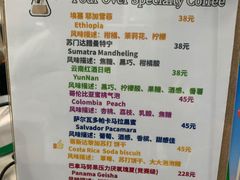 Pour Over Specialty Coffee
埃塞 耶加雪菲 38元
Ethiopia
风味描述：柑橘、茉莉花、柠檬
苏门达腊曼特宁 38元
Sumatra Mandheling
风味描述：焦糖、黑巧、柑橘酸
云南红酒日晒 38元
YunNan
风味描述：焦糖、黑巧、酒感、香料
哥伦比亚蜜桃气泡 45元
Colombia Peach
风味描述：杏桃、荔枝、乳酸、焦糖
萨尔瓦多帕卡马拉 45元
Salvador Pacamara
风味描述：葡萄、酒感、香蕉、甜感佳
哥斯达黎加苏打饼干 45元
Costa Rica Soda biscuit
风味描述：草莓、苏打饼干、太大泡泡糖
巴拿马努果压力厌氧瑰夏 228元
Panama Geisha